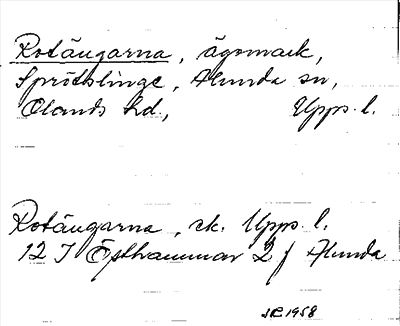 Rotängarna, ägomark,
Sprötslinge, Alunda sn,
Olands hd., Upps. l.
Rotängarna, ek. Upps. l.
12 I Östhammar 2 f Alunda
1958